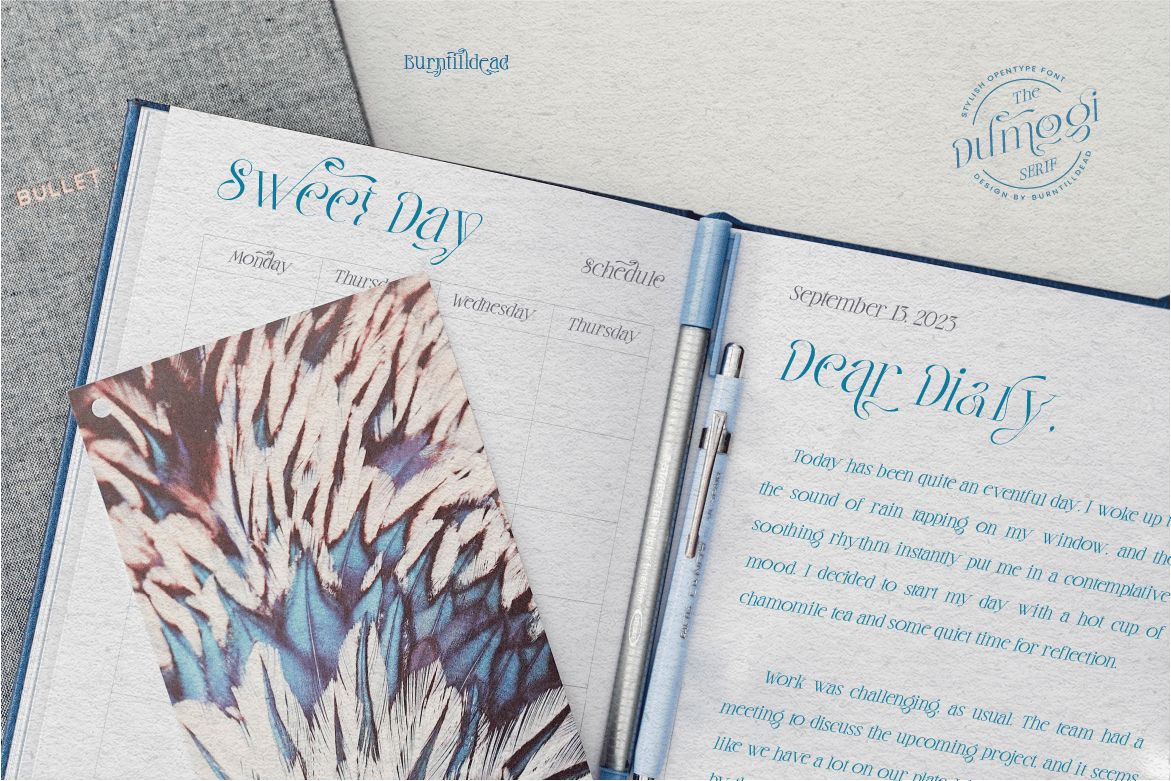 Burntilldead
STYLISH OPENTYPE FONT
The
Dumogi
SERIF
DESIGN BY BURNTILLDEAD
BULLET
Sweet Day
Schedule
Monday
Thursd
Wednesday
Thursday
September 13, 2023
Dear Diary,
Today has been quite an eventful day. I woke up
the sound of rain tapping on my window, and the
soothing rhythm instantly put me in a contemplative
mood. I decided to start my day with a hot cup of
chamomile tea and some quiet time for reflection.
Work was challenging, as usual. The team had a
meeting to discuss the upcoming project, and it seems
like we have a lot on our